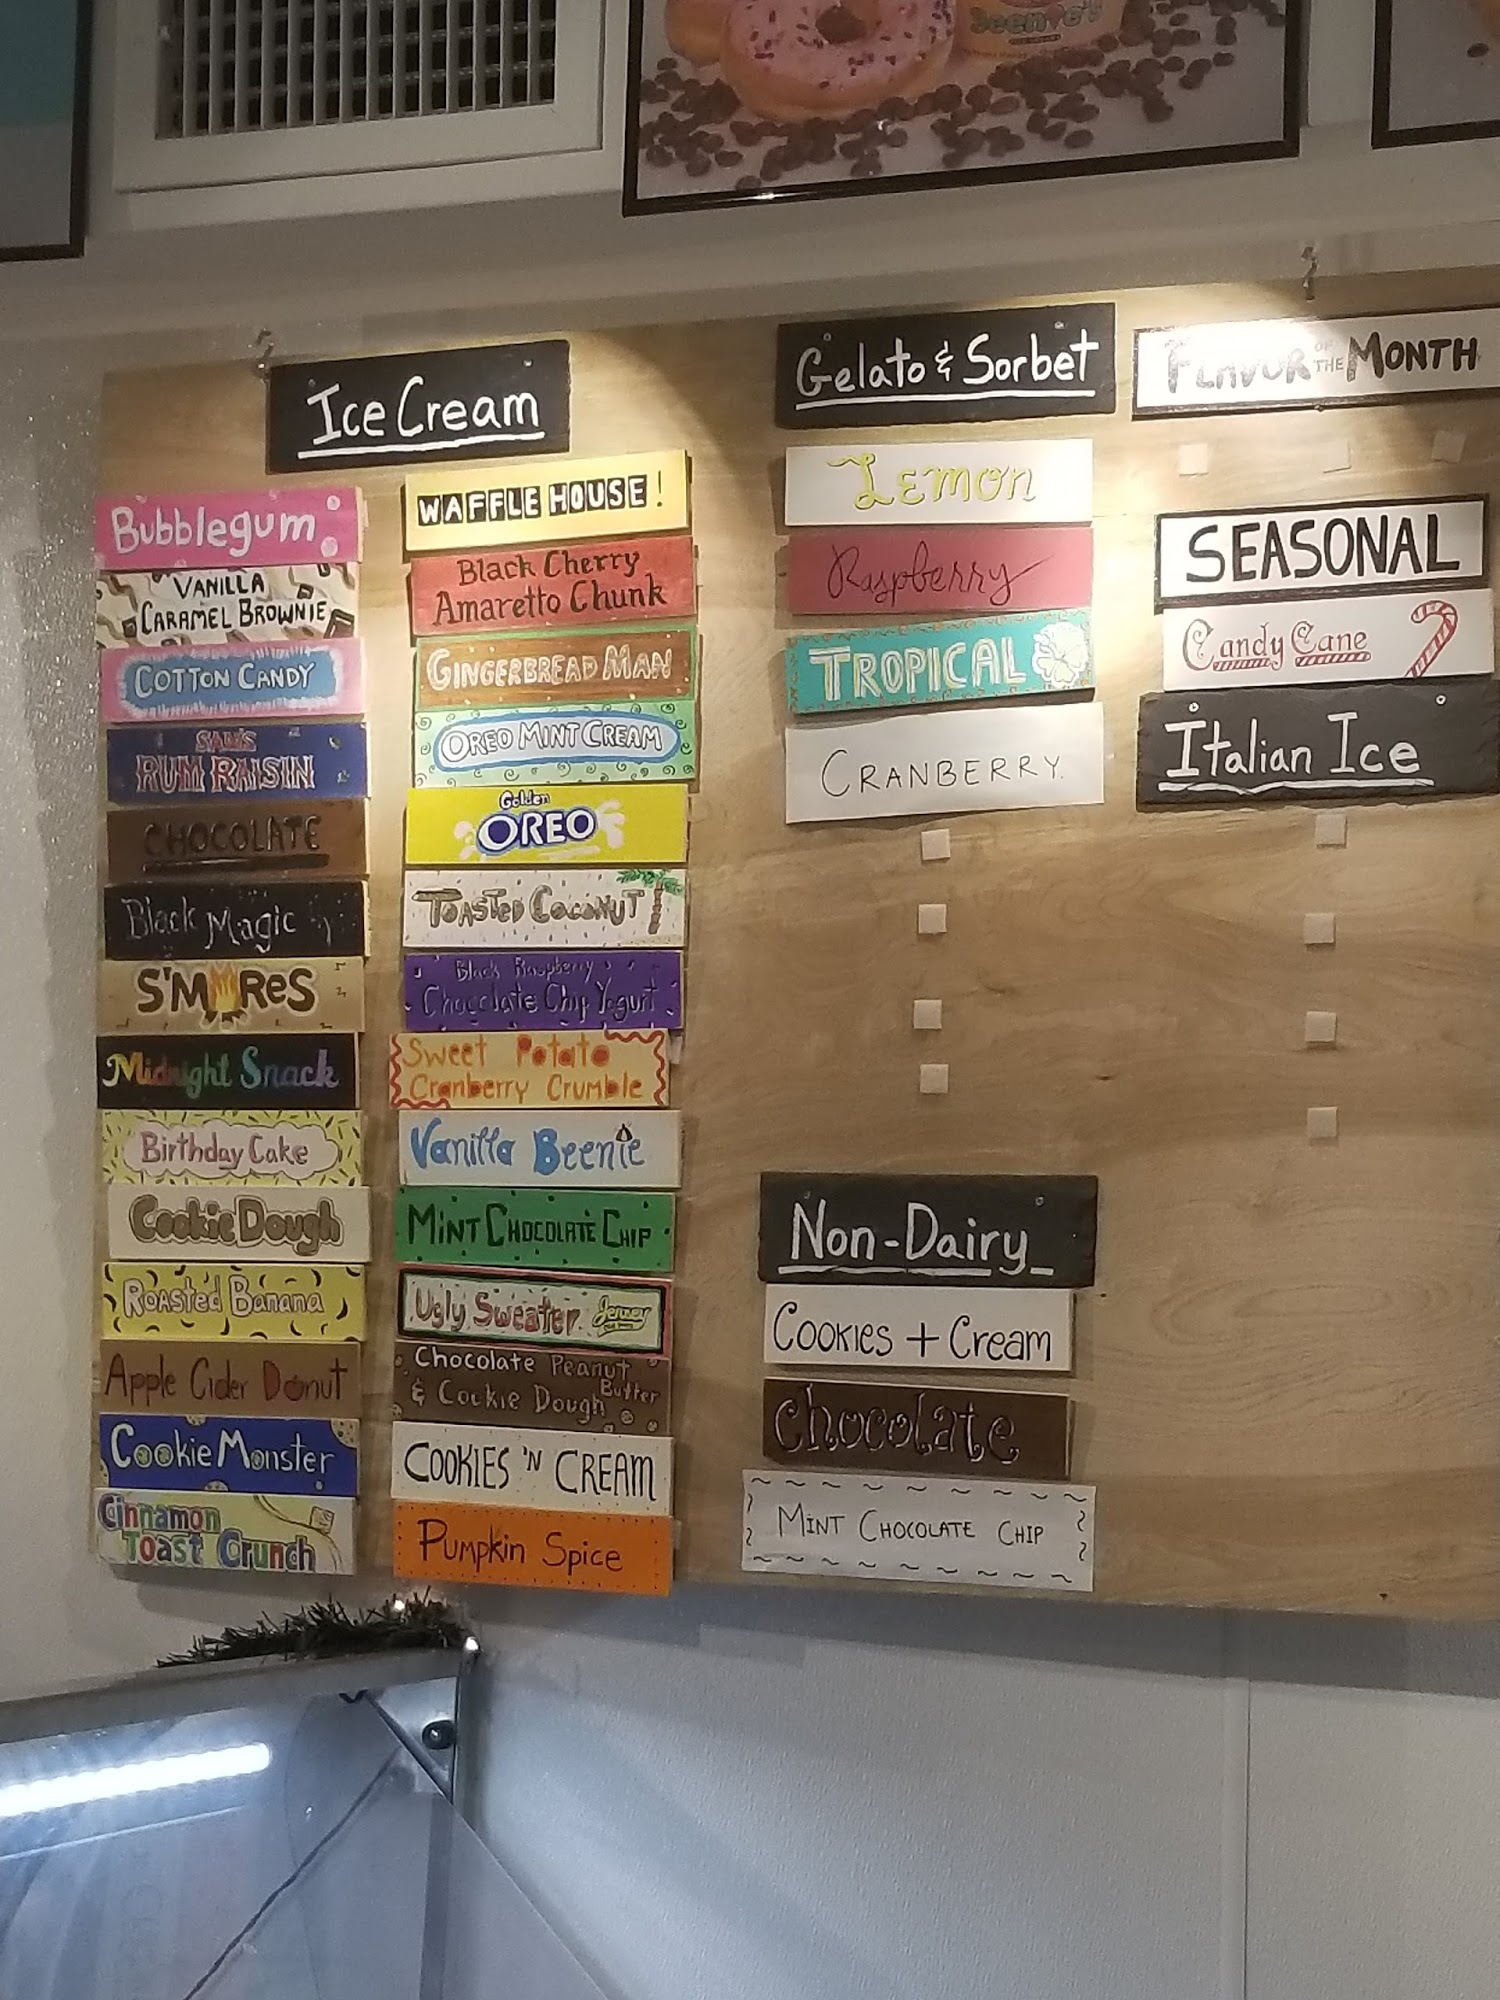 Beenie's
Ice Cream
Bubblegum
VANILLA
CARAMEL BROWNIE
COTTON CANDY
SAM'S
RUM RAISIN
CHOCOLATE
Black Magic
S'MORES
Midnight Snack
Birthday Cake
Cookie Dough
ROASTED BANANA
Apple Cider Donut
Cookie Monster
Cinnamon
Toast Crunch
WAFFLE HOUSE!
Black Cherry
Amaretto Chunk
GINGERBREAD MAN
OREO MINT CREAM
Golden
OREO
TOASTED COCONUT
Black Raspberry
Chocolate Chip Yogurt
Sweet Potato
Cranberry Crumble
Vanilla Beenie
MINT CHOCOLATE CHIP
Ugly Sweater
Chocolate Peanut
Butter
& Cookie Dough
COOKIES 'N CREAM
Pumpkin Spice
Gelato & Sorbet
Lemon
Raspberry
TROPICAL
CRANBERRY.
Non-Dairy
Cookies + Cream
Chocolate
MINT CHOCOLATE CHIP
FLAVOR OF THE MONTH
SEASONAL
Candy Cane
Italian Ice